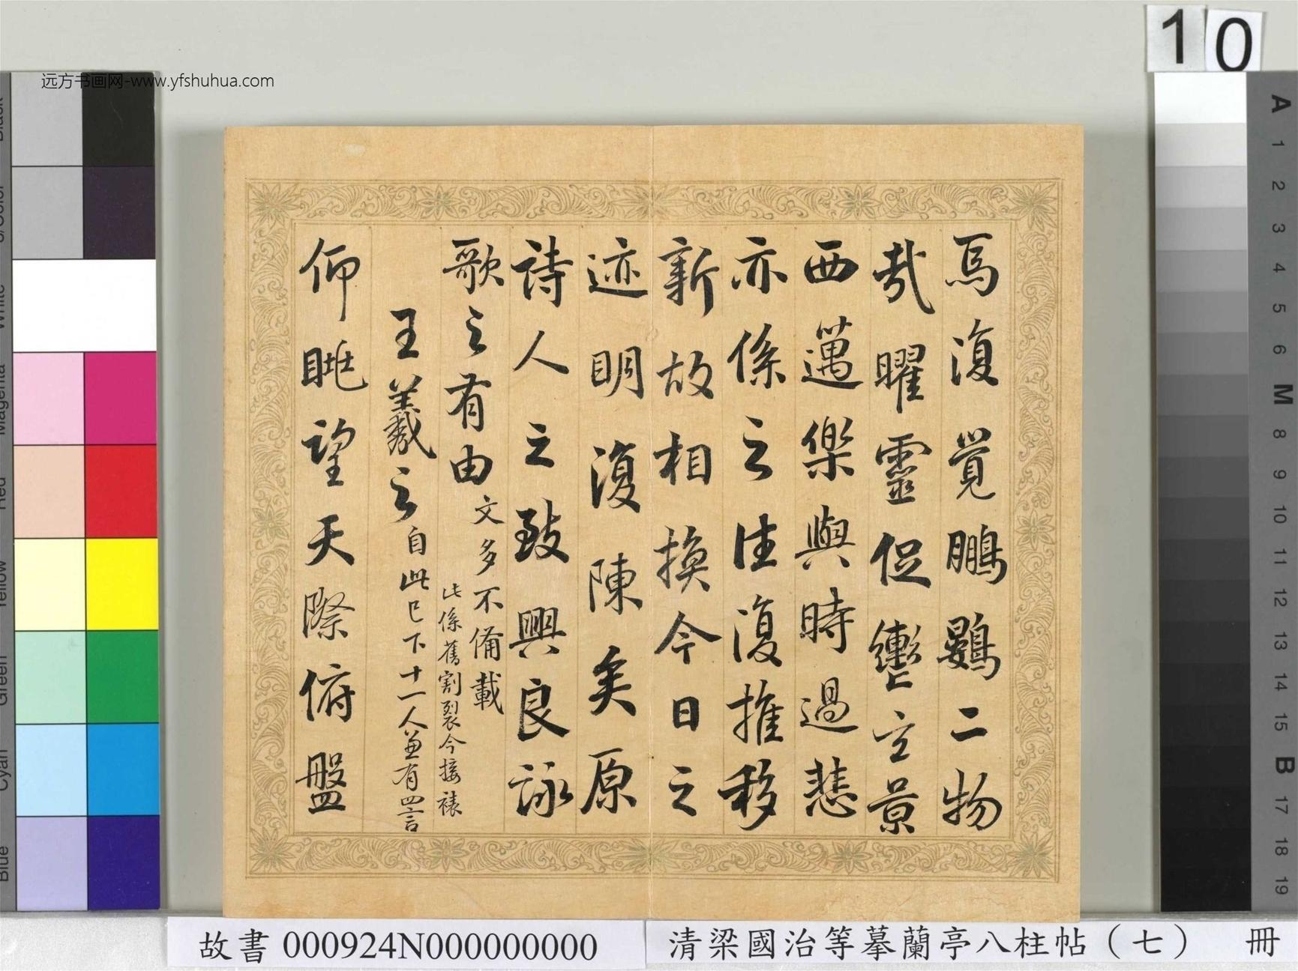 焉復覺鵬鷃二物
哉曜靈促轡玄景
西邁樂與時過悲
亦係之往復推移
新故相換今日之
迹明復陳矣原
詩人之致興良詠
歌之有由文多不備載
此係舊割裂今接裱
王羲之自此已下十一人並有四言
仰眺望天際俯盤
远方书画网-www.yfshuhua.com
10
Black
3/Color
White
Magenta
Red
Yellow
Green
Cyan
Blue
A
1
2
3
4
5
6
M
8
9
10
11
12
13
14
15
B
17
18
19
故書 000924N000000000
清梁國治等摹蘭亭八柱帖（七） 冊